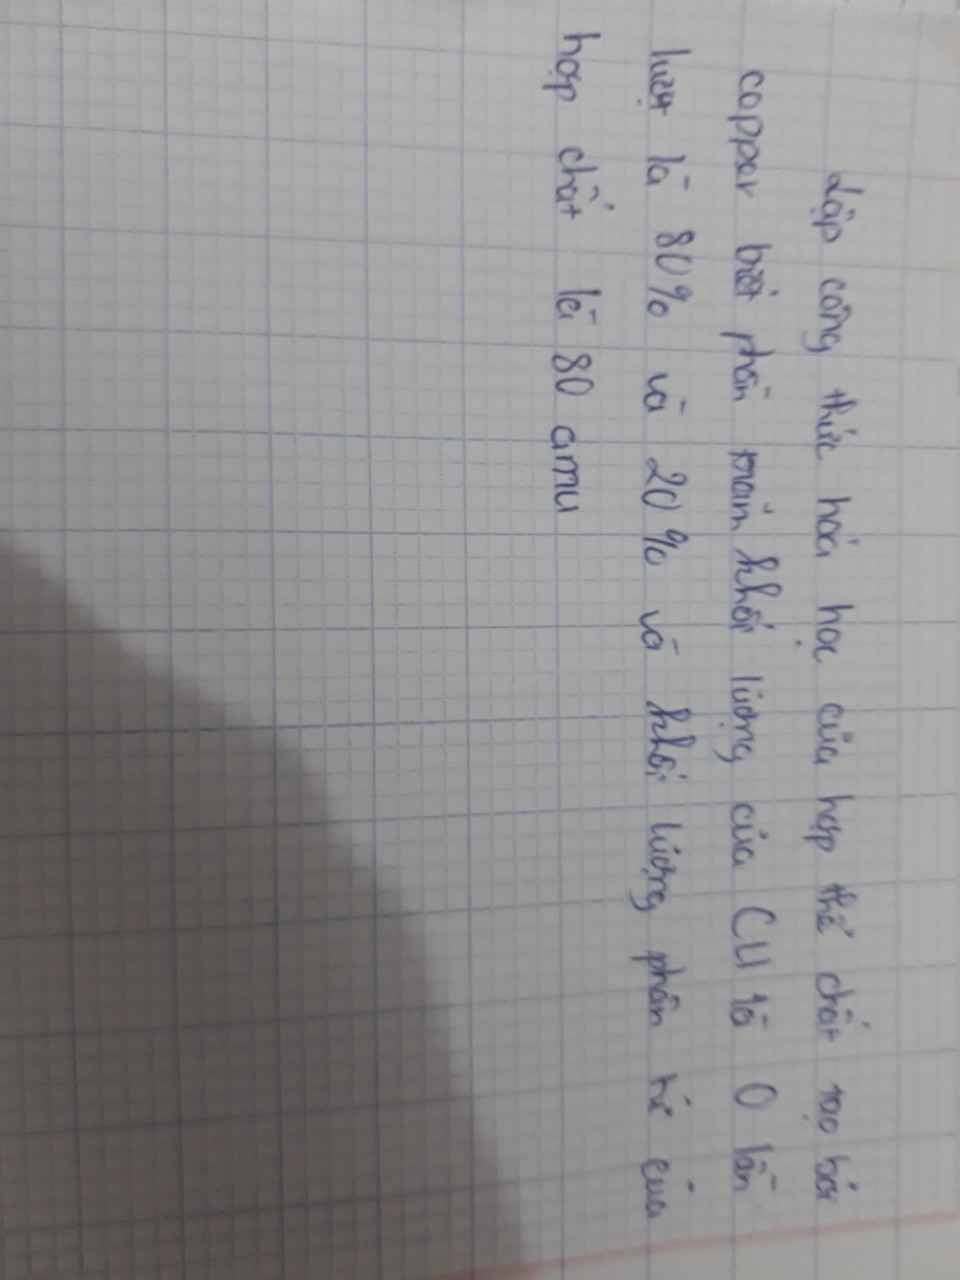 Lập công thức hoá học của hợp thể chất tạo bởi
copper biết phần trăm khối lượng của CU tà O lần
lượt là 80% và 20% và khối lượng phân tử của
hợp chất là 80 amu